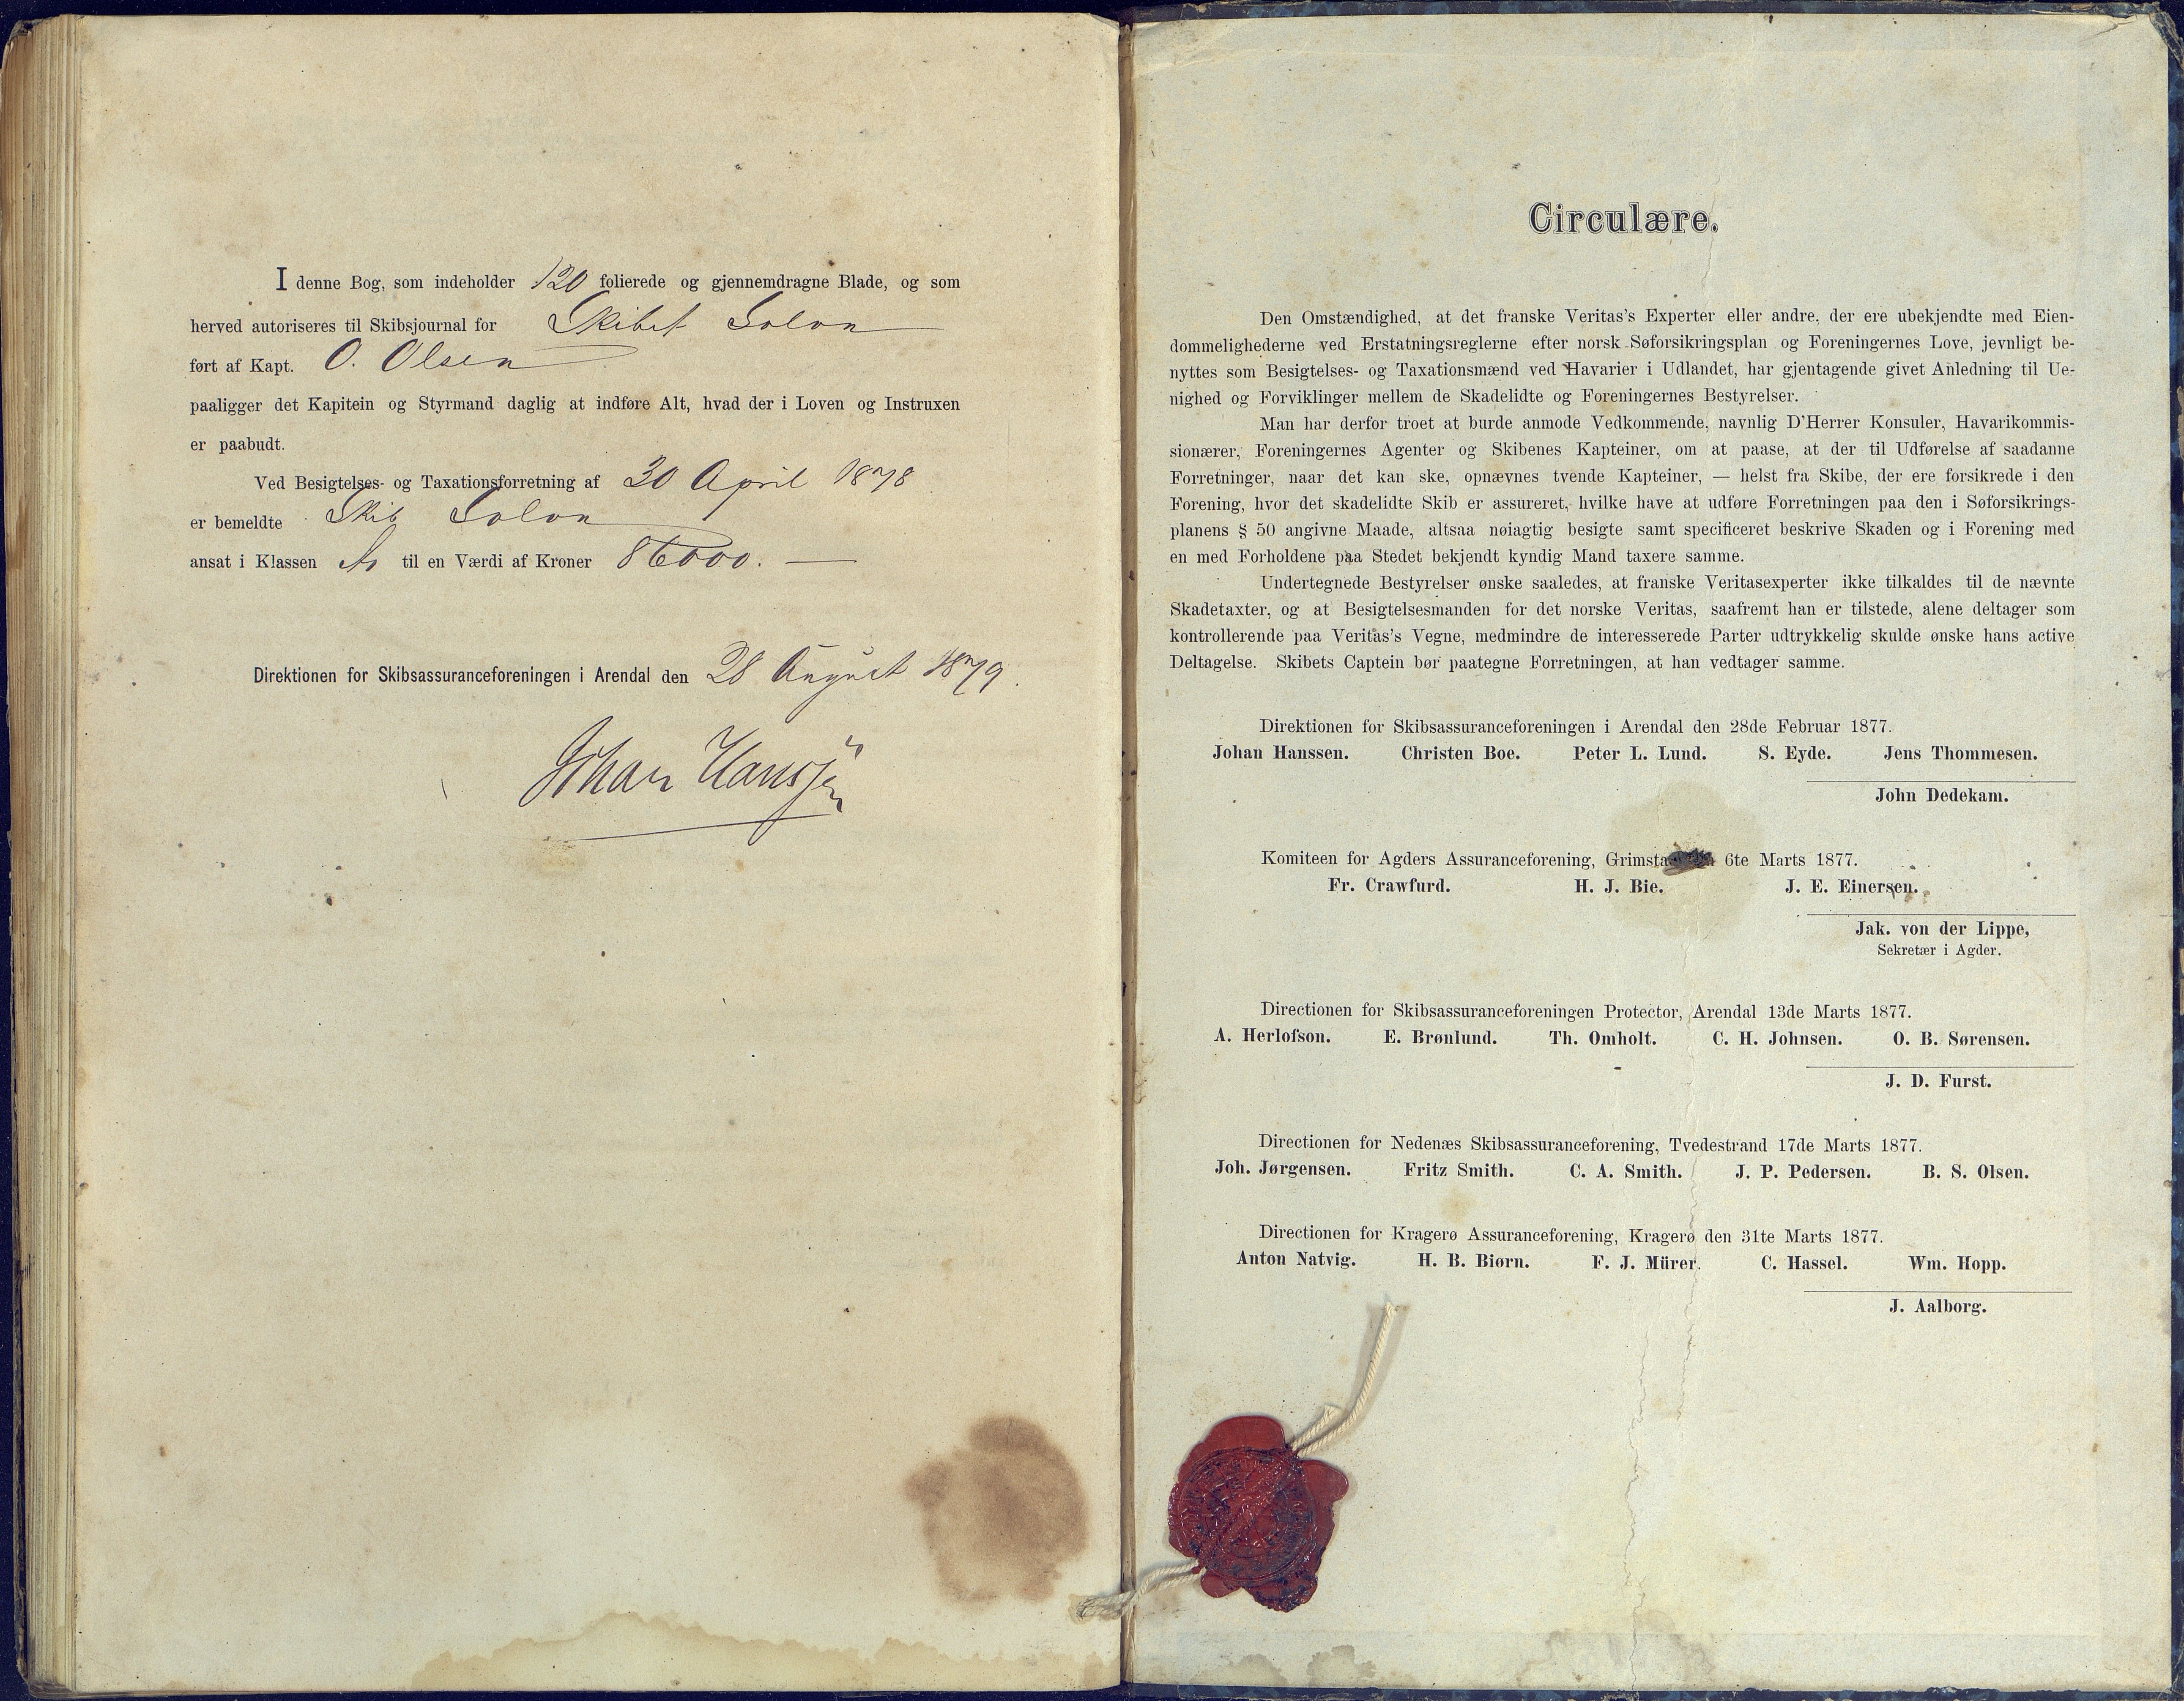 I denne Bog, som indeholder 120 folierede og gjennemdragne Blade, og som
herved autoriseres til Skibsjournal for Skibet Solon
ført af Kapt. O. Olsen
paaligger det Kapitein og Styrmand daglig at indføre Alt, hvad der i Loven og Instruxen
er paabudt.
Ved Besigtelses- og Taxationsforretning af 30 April 1878
er bemeldte Skib Solon
ansat i Klassen til en Værdi af Kroner 86000. —
Direktionen for Skibsassuranceforeningen i Arendal den 28 August 1879.
Johan Hanssen
Circulære.
Den Omstændighed, at det franske Veritas's Experter eller andre, der ere ubekjendte med Eien-
dommelighederne ved Erstatningsreglerne efter norsk Søforsikringsplan og Foreningernes Love, jevnligt be-
nyttes som Besigtelses- og Taxationsmænd ved Havarier i Udlandet, har gjentagende givet Anledning til Ue-
nighed og Forviklinger mellem de Skadelidte og Foreningernes Bestyrelser.
Man har derfor troet at burde anmode Vedkommende, navnlig D'Herrer Konsuler, Havarikommis-
sionærer, Foreningernes Agenter og Skibenes Kapteiner, om at paase, at der til Udførelse af saadanne
Forretninger, naar det kan ske, opnævnes tvende Kapteiner, — helst fra Skibe, der ere forsikrede i den
Forening, hvor det skadelidte Skib er assureret, hvilke have at udføre Forretningen paa den i Søforsikrings-
planens § 50 angivne Maade, altsaa nøiagtig besigte samt specificeret beskrive Skaden og i Forening med
en med Forholdene paa Stedet bekjendt kyndig Mand taxere samme.
Undertegnede Bestyrelser ønske saaledes, at franske Veritasexperter ikke tilkaldes til de nævnte
Skadetaxter, og at Besigtelsesmanden for det norske Veritas, saafremt han er tilstede, alene deltager som
kontrollerende paa Veritas's Vegne, medmindre de interesserede Parter udtrykkelig skulde ønske hans active
Deltagelse. Skibets Captein bør paategne Forretningen, at han vedtager samme.
Direktionen for Skibsassuranceforeningen i Arendal den 28de Februar 1877.
Johan Hanssen. Christen Boe. Peter L. Lund. S. Eyde. Jens Thommesen.
John Dedekam.
Komiteen for Agders Assuranceforening, Grimsta 6te Marts 1877.
Fr. Crawfurd. H. J. Bie. J. E. Einersen.
Jak. von der Lippe,
Sekretær i Agder.
Directionen for Skibsassuranceforeningen Protector, Arendal 13de Marts 1877.
A. Herlofson. E. Brønlund. Th. Omholt. C. H. Johnsen. O. B. Sørensen.
J. D. Furst.
Directionen for Nedenæs Skibsassuranceforening, Tvedestrand 17de Marts 1877.
Joh. Jørgensen. Fritz Smith. C. A. Smith. J. P. Pedersen. B. S. Olsen.
Directionen for Kragerø Assuranceforening, Kragerø den 31te Marts 1877.
Anton Natvig. H. B. Biørn. F. J. Mürer. C. Hassel. Wm. Hopp.
J. Aalborg.